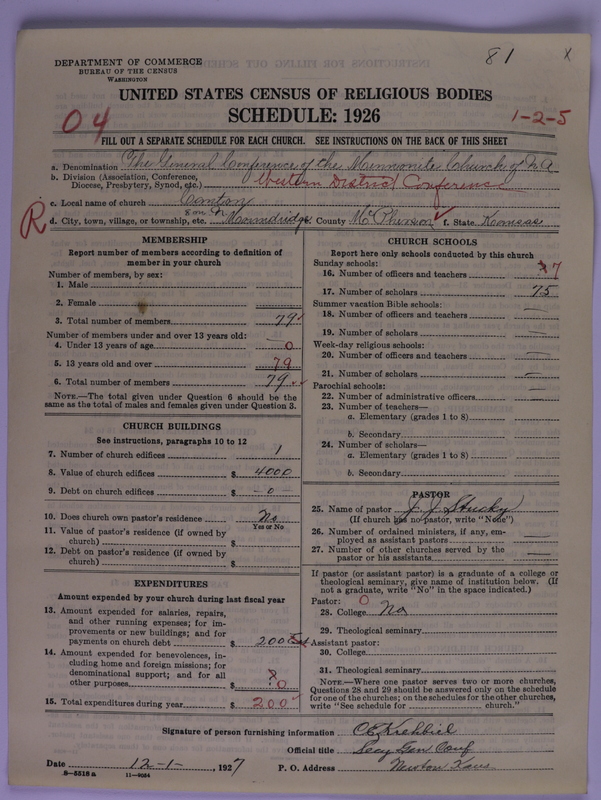 81 x
DEPARTMENT OF COMMERCE
BUREAU OF THE CENSUS
WASHINGTON
UNITED STATES CENSUS OF RELIGIOUS BODIES
SCHEDULE: 1926
04
1-2-5
FILL OUT A SEPARATE SCHEDULE FOR EACH CHURCH. SEE INSTRUCTIONS ON THE BACK OF THIS SHEET
a. Denomination The General Conference of the Mennonite Church of N A
b. Division (Association, Conference, Diocese, Presbytery, Synod, etc.) Western District Conference
c. Local name of church Canton
R
d. City, town, village, or township, etc. 8 mi N Moundridge e. County McPherson f. State Kansas
MEMBERSHIP
Report number of members according to definition of member in your church
Number of members, by sex:
1. Male
2. Female
3. Total number of members 79
Number of members under and over 13 years old:
4. Under 13 years of age 0
5. 13 years old and over 79
6. Total number of members 79
NOTE.—The total given under Question 6 should be the same as the total of males and females given under Question 3.
CHURCH BUILDINGS
See instructions, paragraphs 10 to 12
7. Number of church edifices 1
8. Value of church edifices $ 4000
9. Debt on church edifices $ -0-
10. Does church own pastor's residence No
Yes or No
11. Value of pastor's residence (if owned by church) $
12. Debt on pastor's residence (if owned by church) $
EXPENDITURES
Amount expended by your church during last fiscal year
13. Amount expended for salaries, repairs, and other running expenses; for improvements or new buildings; and for payments on church debt $ 200
14. Amount expended for benevolences, including home and foreign missions; for denominational support; and for all other purposes $ 0
15. Total expenditures during year $ 200
CHURCH SCHOOLS
Report here only schools conducted by this church
Sunday schools:
16. Number of officers and teachers 7
17. Number of scholars 75
Summer vacation Bible schools:
18. Number of officers and teachers —
19. Number of scholars —
Week-day religious schools:
20. Number of officers and teachers —
21. Number of scholars —
Parochial schools:
22. Number of administrative officers —
23. Number of teachers—
a. Elementary (grades 1 to 8)
b. Secondary
24. Number of scholars—
a. Elementary (grades 1 to 8)
b. Secondary
PASTOR
25. Name of pastor J. J. Stucky
(If church has no pastor, write "None")
26. Number of ordained ministers, if any, employed as assistant pastors —
27. Number of other churches served by the pastor or his assistants —
If pastor (or assistant pastor) is a graduate of a college or theological seminary, give name of institution below. (If not a graduate, write "No" in the space indicated.)
Pastor: 0
28. College No
29. Theological seminary
Assistant pastor:
30. College
31. Theological seminary
NOTE.—Where one pastor serves two or more churches, Questions 28 and 29 should be answered only on the schedule for one of the churches; on the schedules for the other churches, write "See schedule for church."
Signature of person furnishing information C E Krehbiel
Official title Secy Gen Conf
Date 12-1-, 1927 P. O. Address Newton Kans
8-5518 a 11-9034